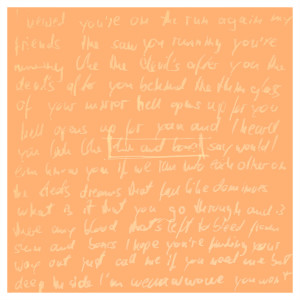 I heard you're on the run again my
friends they saw you running you're
running like the devil's after you the
devil's after you behind the thin glass
of your mirror hell opens up for you
hell opens up for you and I heard
you look like skin and bones say would I
even know you if we ran into each other on
the devil's dreams that feel like dominoes
what is it that you go through and is
there any blood that's left to bleed from
skin and bones I hope you're finding your
way out just call me if you need me but
deep inside I'm you won't